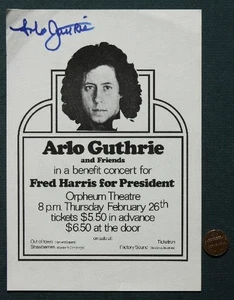 Arlo Guthrie
Arlo Guthrie
and Friends
in a benefit concert for
Fred Harris for President
Orpheum Theatre
8 p.m. Thursday February 26th
tickets $5.50 in advance
$6.50 at the door
on sale at:
Out of Town
Ticketron
Strawberries
Factory Sound